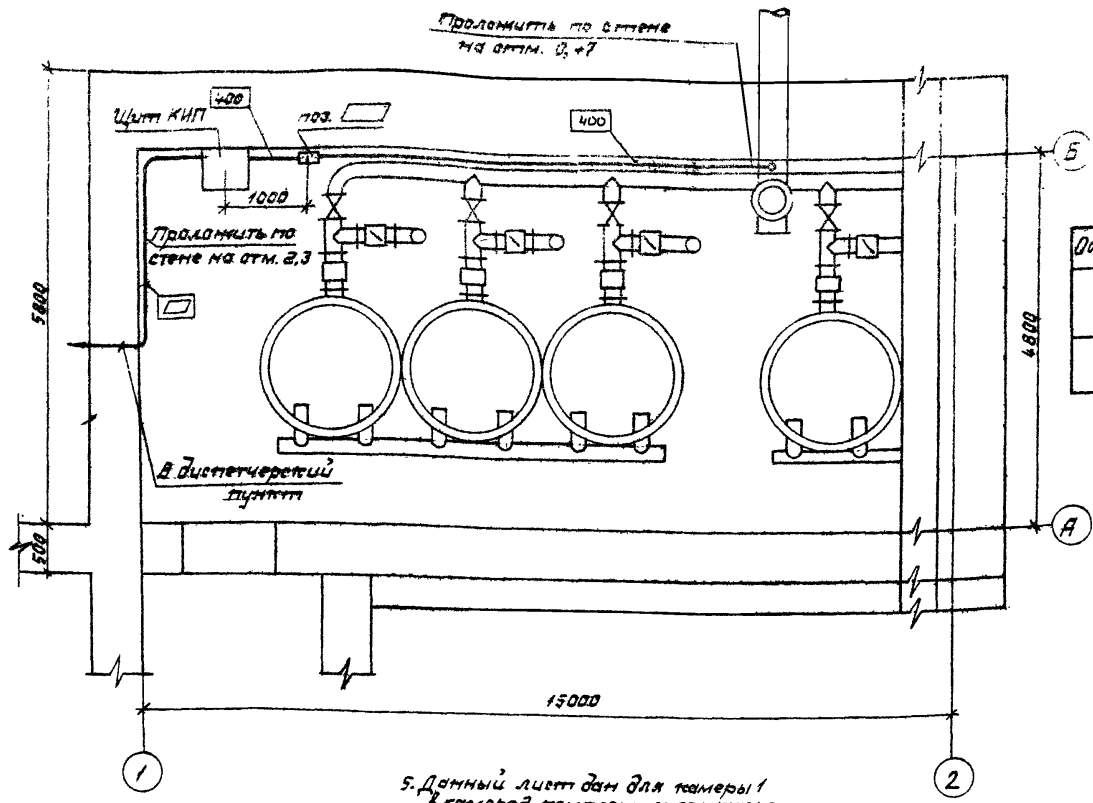 Проложить по стене
на отм. 0,+7
Щит КИП
400
поз.
400
Б
1000
Проложить по
стене на отм. 2,3
5800
4800
В диспетчерский
пункт
А
500
15000
1
2
5. Данный лист дан для камеры 1